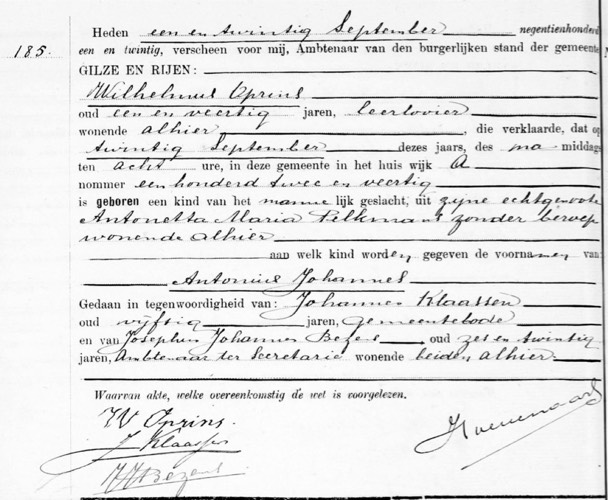 Heden een en twintig September negentienhonderd
185. een en twintig, verscheen voor mij, Ambtenaar van den burgerlijken stand der gemeente
GILZE EN RIJEN:
Wilhelmus Oprins
oud een en veertig jaren, leerlooier
wonende alhier, die verklaarde, dat op
twintig September dezes jaars, des na middags
ten acht ure, in deze gemeente in het huis wijk A
nommer een honderd twee en veertig
is geboren een kind van het mannelijk geslacht, uit zijne echtgenoote
Antonetta Maria Pelkmans zonder beroep
wonende alhier
aan welk kind worden gegeven de voornamen van
Antonius Johannes
Gedaan in tegenwoordigheid van: Johannes Klaassen
oud vijftig jaren, gemeentebode
en van Josephus Johannes Bezems oud zes en twintig
jaren, Ambtenaar ter Secretarie wonende beiden alhier.
Waarvan akte, welke overeenkomstig de wet is voorgelezen.
W Oprins.
J Klaassen